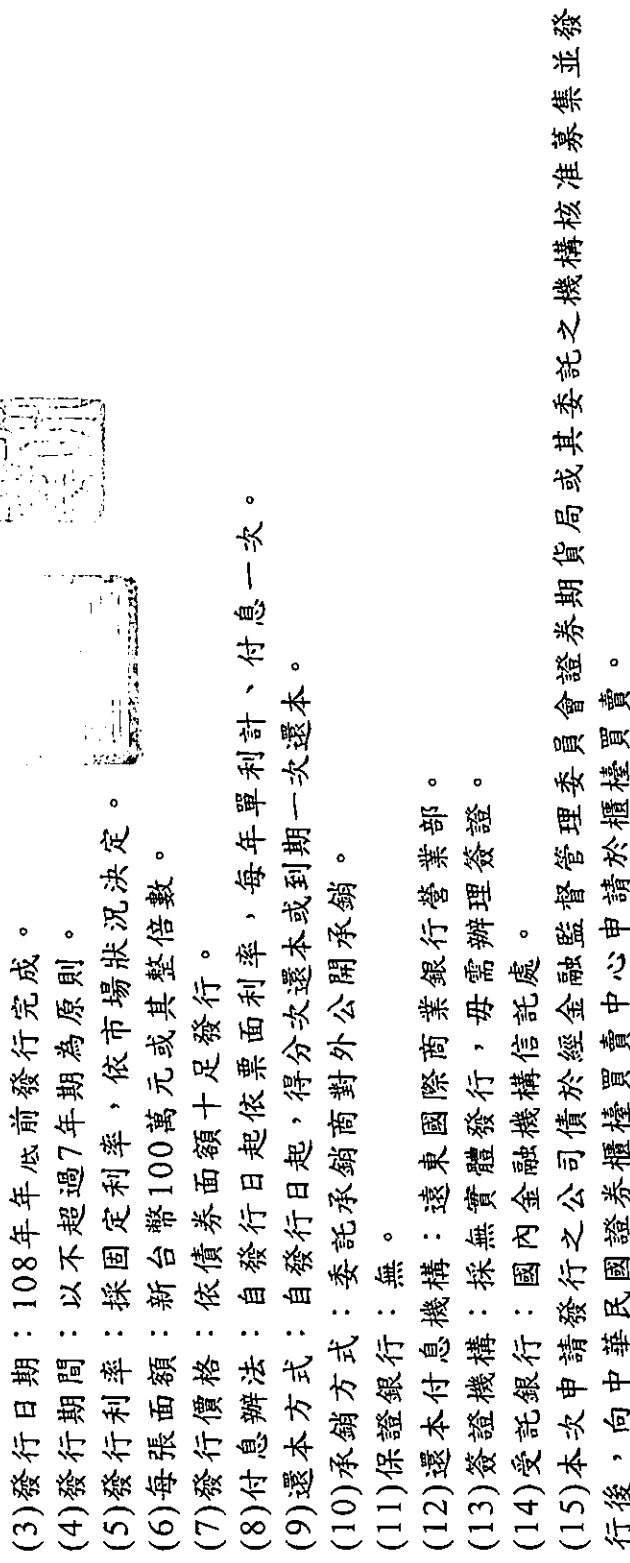 (3)發行日期：108年年底前發行完成。
(4)發行期間：以不超過7年期為原則。
(5)發行利率：採固定利率，依市場狀況決定。
(6)每張面額：新台幣100萬元或其整倍數。
(7)發行價格：依債券面額十足發行。
(8)付息辦法：自發行日起依票面利率，每年單利計、付息一次。
(9)還本方式：自發行日起，得分次還本或到期一次還本。
(10)承銷方式：委託承銷商對外公開承銷。
(11)保證銀行：無。
(12)還本付息機構：遠東國際商業銀行營業部。
(13)簽證機構：採無實體發行，毋需辦理簽證。
(14)受託銀行：國內金融機構信託處。
(15)本次申請發行之公司債於經金融監督管理委員會證券期貨局或其委託之機構核准募集並發
行後，向中華民國證券櫃檯買賣中心申請於櫃檯買賣。